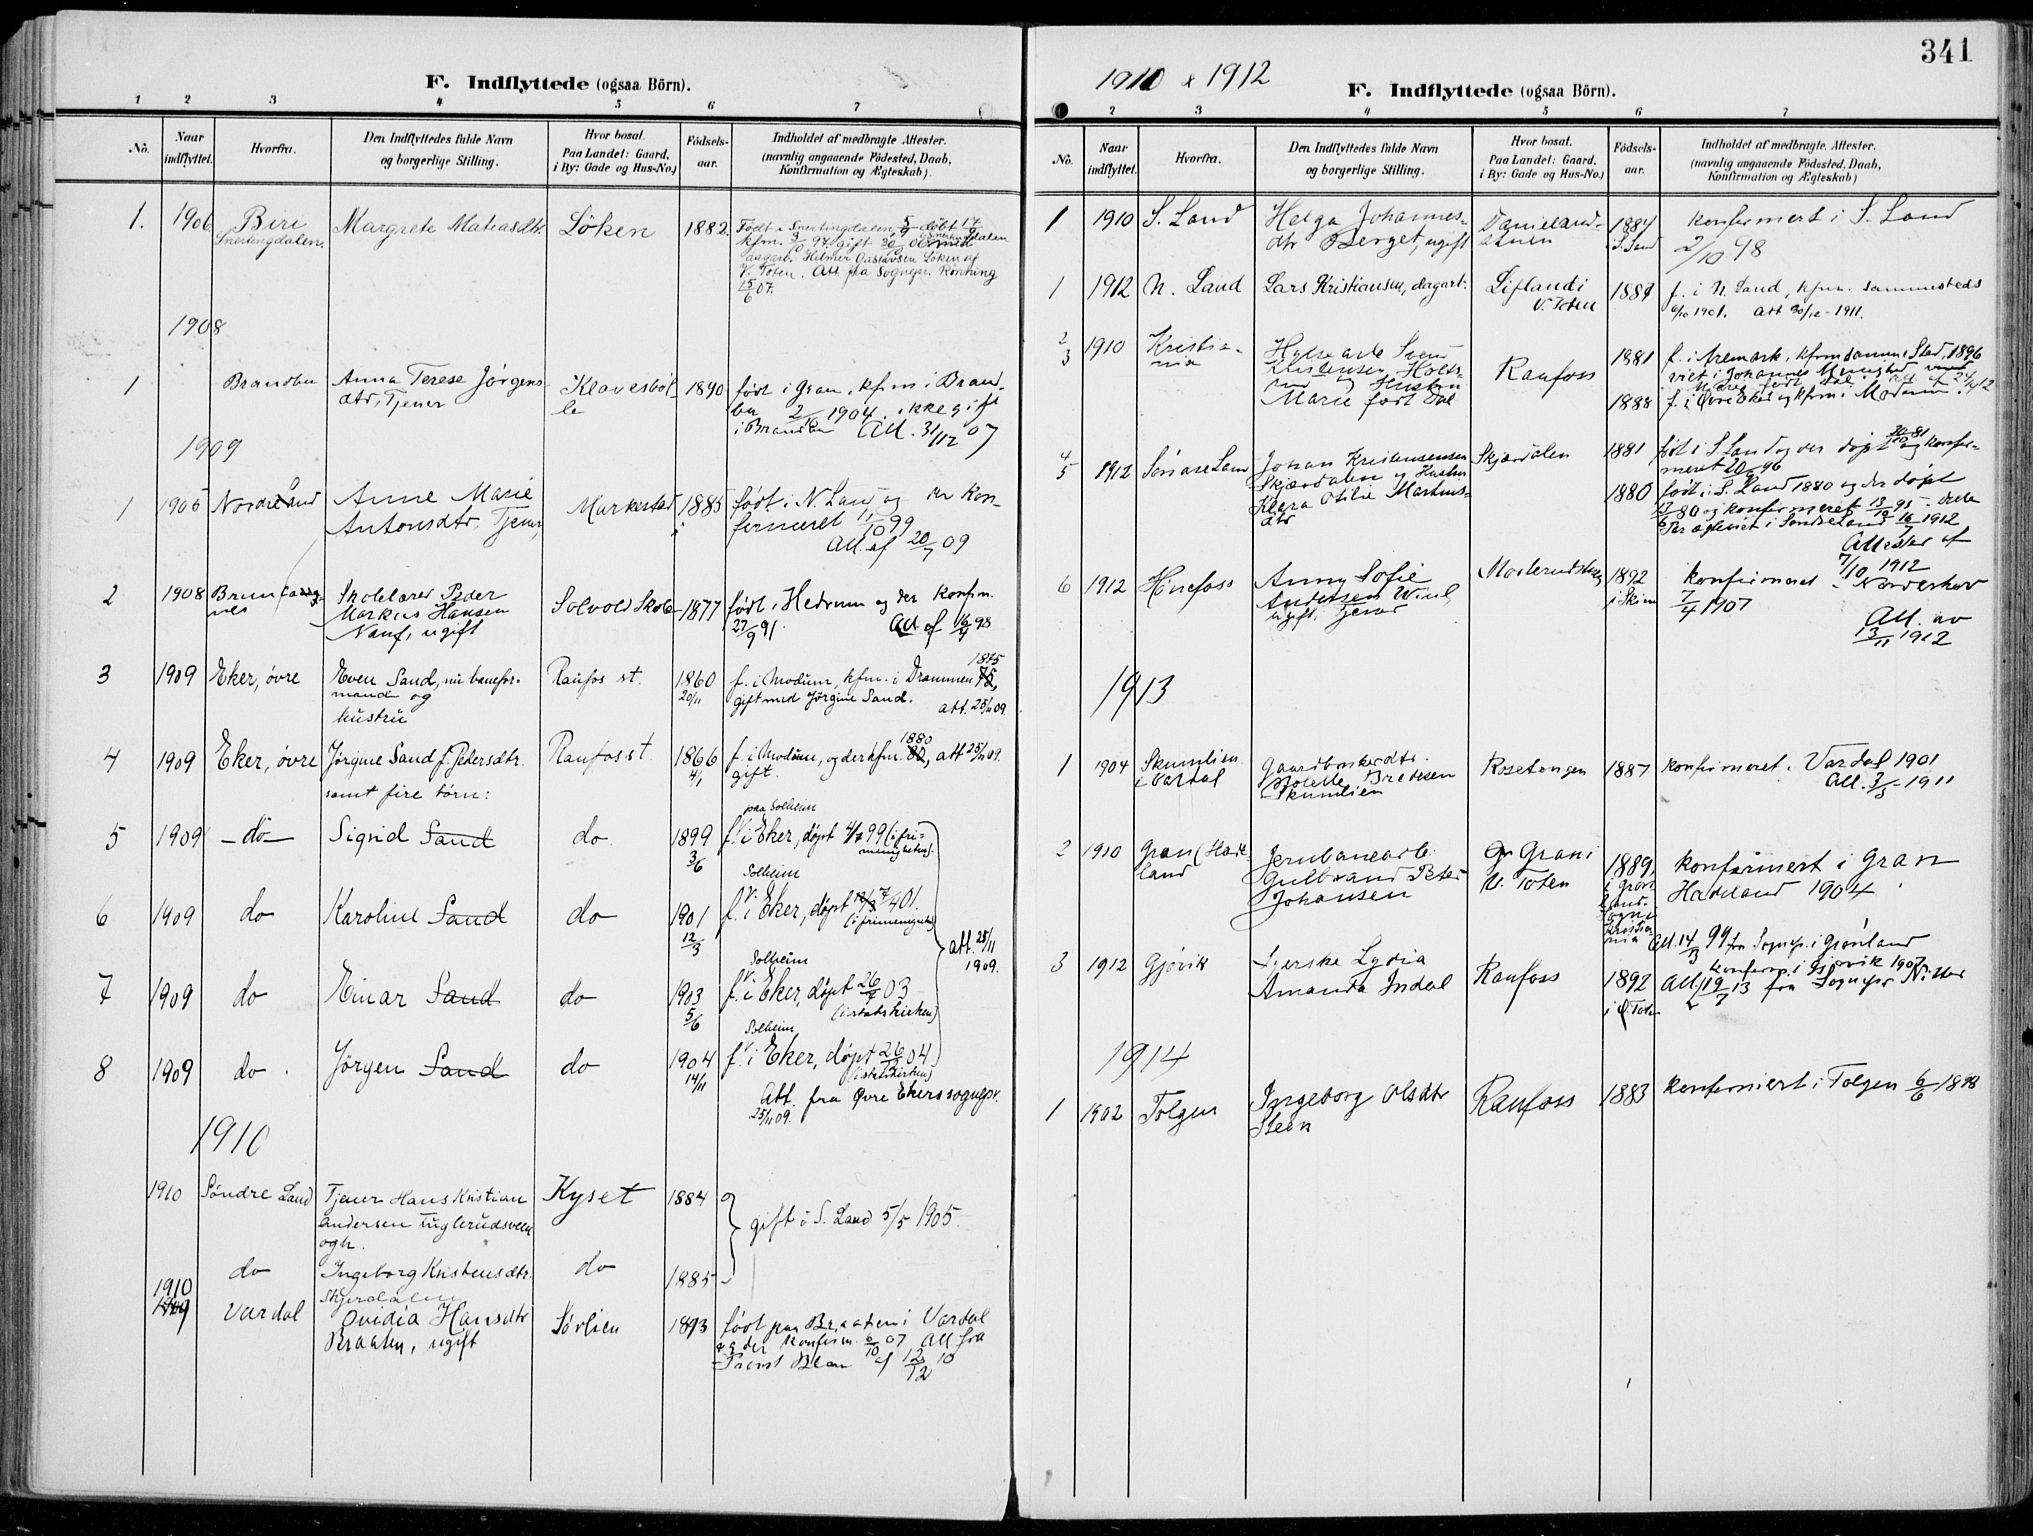 F. Indflyttede (ogsaa Börn).
1 2 3 4 5 6 7
No.
Naar indflyttet.
Hvorfra.
Den Indflyttedes fulde Navn
og borgerlige Stilling.
Hvor bosat.
Paa Landet: Gaard,
i By: Gade og Hus-No.)
Födsels-
aar.
Indholdet af medbragte Attester.
(navnlig angaaende Födested, Daab,
Konfirmation og Ægteskab).
1. 1906 Biri Margrete Matiasdtr. Löken 1882.
Snertingdalen.
Födt i Snertingdalen, döbt
kfm. gift
aagarb. Helmer Gustavsen Löken af
V. Toten. Att. fra Sognepr. Rönning
15/6 07.
1908
1 Brandbu Anna Terese Jørgens- Klavesböl- 1890 født i Gran, kfm i Brand-
dtr, Tjener le bu 2/10 1904. ikke gift
i Brandbu Att. 31/12 07
1909
1 1905 Nordre Land Anne Marie Markestad 1885 født i N. Land og der kon-
Antonsdtr. Tjener, i fermeret 1/10 99
Att. af 20/7 09
2 1908 Brunlag- Skolelærer Peder Solvold Skole 1877 født i Hedrum og der konfm.
nes Markus Hansen 27/9 91. Att af 16/4 98
Nauf, ugift
3 1909 Eker, øvre Even Sand, nu banefor- Raufos st. 1860 f. i Modum, kfm. i Drammen 1875
mand og 20/11 gift med Jørgine Sand. att. 25/11 09.
hustru
4 1909 Eker, øvre Jørgine Sand f. Pedersdtr. Raufosst 1866 f. i Modum, og der kfm. 1880, att 25/11 09.
samt fire børn: 4/1 gift.
paa Solheim
5 1909 -do- Sigrid Sand do 1899 f. i Eker, døpt 4/7 99 (i fri-
3/6 menigheten).
Solheim
6 1909 do Karoline Sand do 1901 f. i Eker, døpt 7/4 01.
12/3 (i frimenighet)
att. 25/11
1909.
Solheim
7 1909 do Einar Sand do 1903 f. i Eker, døpt 26/7 03
5/6 (i statskirken)
Solheim
8 1909 do. Jørgen Sand do 1904 f. i Eker, døpt 26/12 04
14/11 (i statskirken)
Att. fra Øvre Ekers sognepr.
25/11 09.
1910
1910 Søndre Land Tjener Hans Kristian Kyset 1884
Andersen Uglerudsveen
ogh.
gift i S. Land 5/5 1905.
do Ingeborg Kristensdtr. do 1885
Skjerdalen
1910
1909 Vardal Ovidia Hansdtr Sørlien 1893 født paa Braaten i Vardal
Braaten, ugift og der konfirm. 6/10 07 Att fra
Provst Blom af 12/12 10
341
1910 & 1912
F. Indflyttede (ogsaa Börn).
2 3 4 5 6 7
No.
Naar
indflyttet.
Hvorfra.
Den Indflyttedes fulde Navn
og borgerlige Stilling.
Hvor bosat.
Paa Landet: Gaard,
i By: Gade og Hus-No.)
Födsels-
aar.
Indholdet af medbragte Attester.
(navnlig angaaende Födested, Daab,
Konfirmation og Ægteskab)
1 1910 S. Land Helga Johannes- 1884 konfirmert i S. Land
dtr Berget, ugift i S. Land 2/10 98
1 1912 N. Land Lars Kristiansen, dagarb. Liflandi 1884 f. i N. Land, kfm. sammesteds
V. Toten 6/10 1901. att 30/12 - 1911.
2
3 1910 Kristia- Raufoss 1881 f. i Aremark, kfm samme Sted, 1896
nia viet i Johannes Menighed
og Hustru
Marie født Dal 1888 f. i Øvre Eker og kfm. i Modum.
4
5 1912 Søndre Land Johan Kristensensen Skjærdalen 1881 født i S. Land og der døpt og konfer-
Skjærdalen og Hustru meret 20/9 96
Klara Otilie Martins- 1880 født i S. Land 1880 og der døpt
dtr 80 og konfirmeret 13/10 95 - dette
Par ægteviet i Søndre Land 16/7 1912
Attester af
7/10 1912
6 1912 Hønefoss Anny Sofie 1892 konfirmeret i Norderhov
Andersen i Skien 7/4 1907
ugift, Tjener Att. av
13/11 1912
1913
1 1904 Skumlien Gaardbrukerdtr. Rosetangen 1887 konfirmeret i Vardal 1901
i Vardal Bredesen Att. 3/5 - 1911
Skumlien
2 1910 Gran (Hade- Jernbanearb. Grani 1889, konfirmert i Gran
land Gulbrand Peter V. Toten i Grøn- Hadeland 1904.
Johansen lands
sogn
Kristia-
nia Att. 14/3 99 fra Sognepr. i Grønland
3 1912 Gjøvik Lydia Raufoss 1892 konferm. i Gjøvik 1907
Amanda Indal i V. Toten Att. 19/7 13 fra Sognepr
1914
1 1902 Tolgen Ingeborg Olsdtr Raufoss 1883 konfermert i Tolgen 6/6 1898
Steen